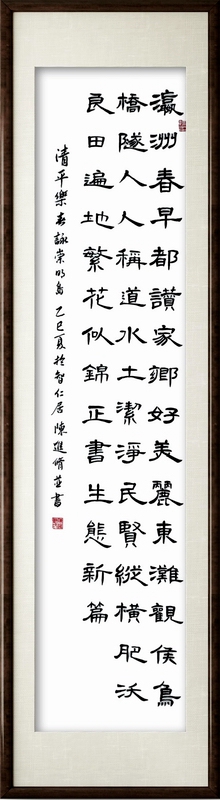 瀛洲春早都讚家鄉好美麗東灘觀侯鳥
橋隧人人稱道水土潔淨民賢縱橫肥沃
良田遍地繁花似錦正書生態新篇
清平樂春詠崇明島乙巳夏於智仁居陳進脩並書